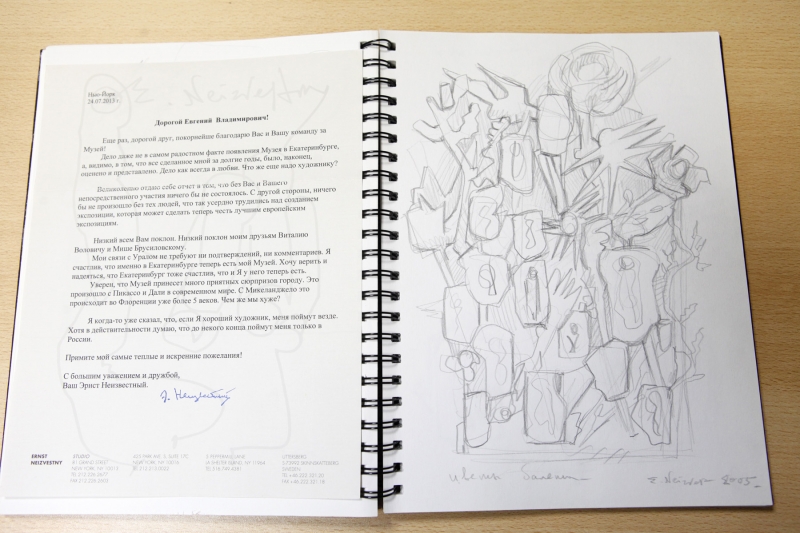 E Neizvestny
Нью-Йорк
24.07.2013 г
Дорогой Евгений Владимирович!
Еще раз, дорогой друг, покорнейше благодарю Вас и Вашу команду за
Музей!
Дело даже не в самом радостном факте появления Музея в Екатеринбурге,
а, видимо, в том, что все сделанное мной за долгие годы, было, наконец,
оценено и представлено. Дело как всегда в любви. Что же еще надо художнику?
Великолепно отдаю себе отчет в том, что без Вас и Вашего
непосредственного участия ничего бы не состоялось. С другой стороны, ничего
бы не произошло без тех людей, что так усердно трудились над созданием
экспозиции, которая может сделать теперь честь лучшим европейским
экспозициям.
Низкий всем Вам поклон. Низкий поклон моим друзьям Виталию
Воловичу и Мише Брусиловскому.
Мои связи с Уралом не требуют ни подтверждений, ни комментариев. Я
счастлив, что именно в Екатеринбурге теперь есть мой Музей. Хочу верить и
надеяться, что Екатеринбург тоже счастлив, что и Я у него теперь есть.
Уверен, что Музей принесет много приятных сюрпризов городу. Это
произошло с Пикассо и Дали в современном мире. С Микеланджело это
происходит во Флоренции уже более 5 веков. Чем же мы хуже?
Я когда-то уже сказал, что, если Я хороший художник, меня поймут везде.
Хотя в действительности думаю, что до конца поймут меня только в
России.
Примите мой самые теплые и искренние пожелания!
С большим уважением и дружбой,
Ваш Эрнст Неизвестный.
Э. Неизвестный
ERNST
NEIZVESTNY
STUDIO
81 GRAND STREET
NEW YORK, NY 10013
SWEDEN
E Neizvest 2005.